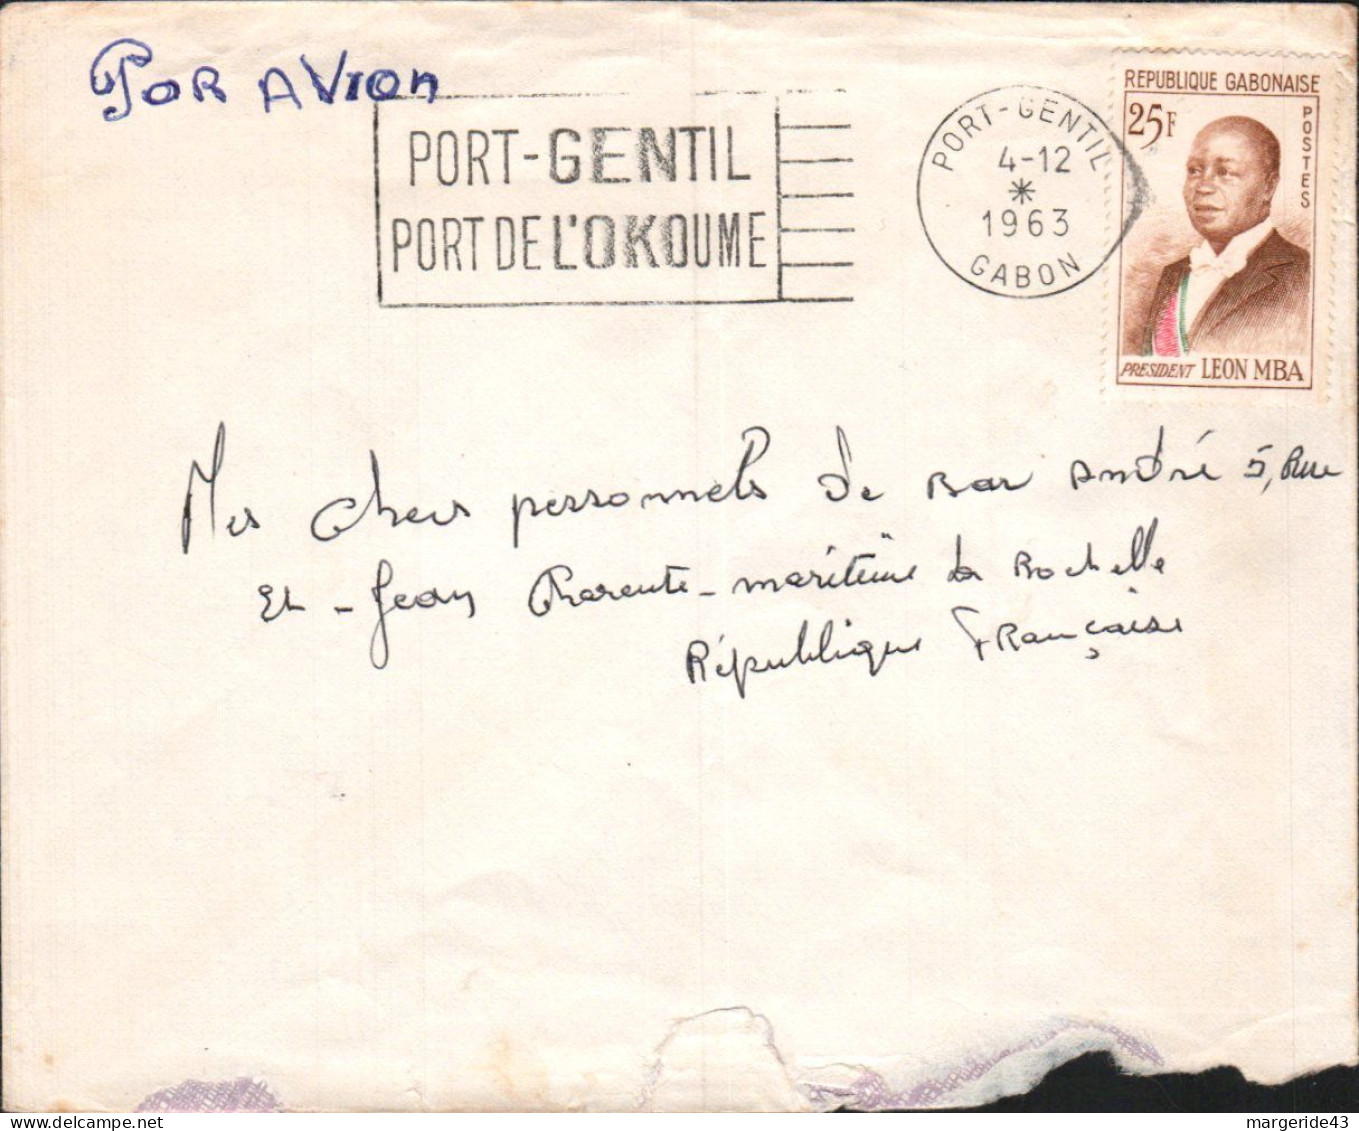 Por AVion
PORT-GENTIL
PORT DE L'OKOUME
PORT-GENTIL
4-12
1963
GABON
REPUBLIQUE GABONAISE
25F
POSTES
PRESIDENT LEON MBA
Mes chers personnels de Bar André 5, Rue
St - Jean Charente-maritime La Rochelle
République Française
margeride43